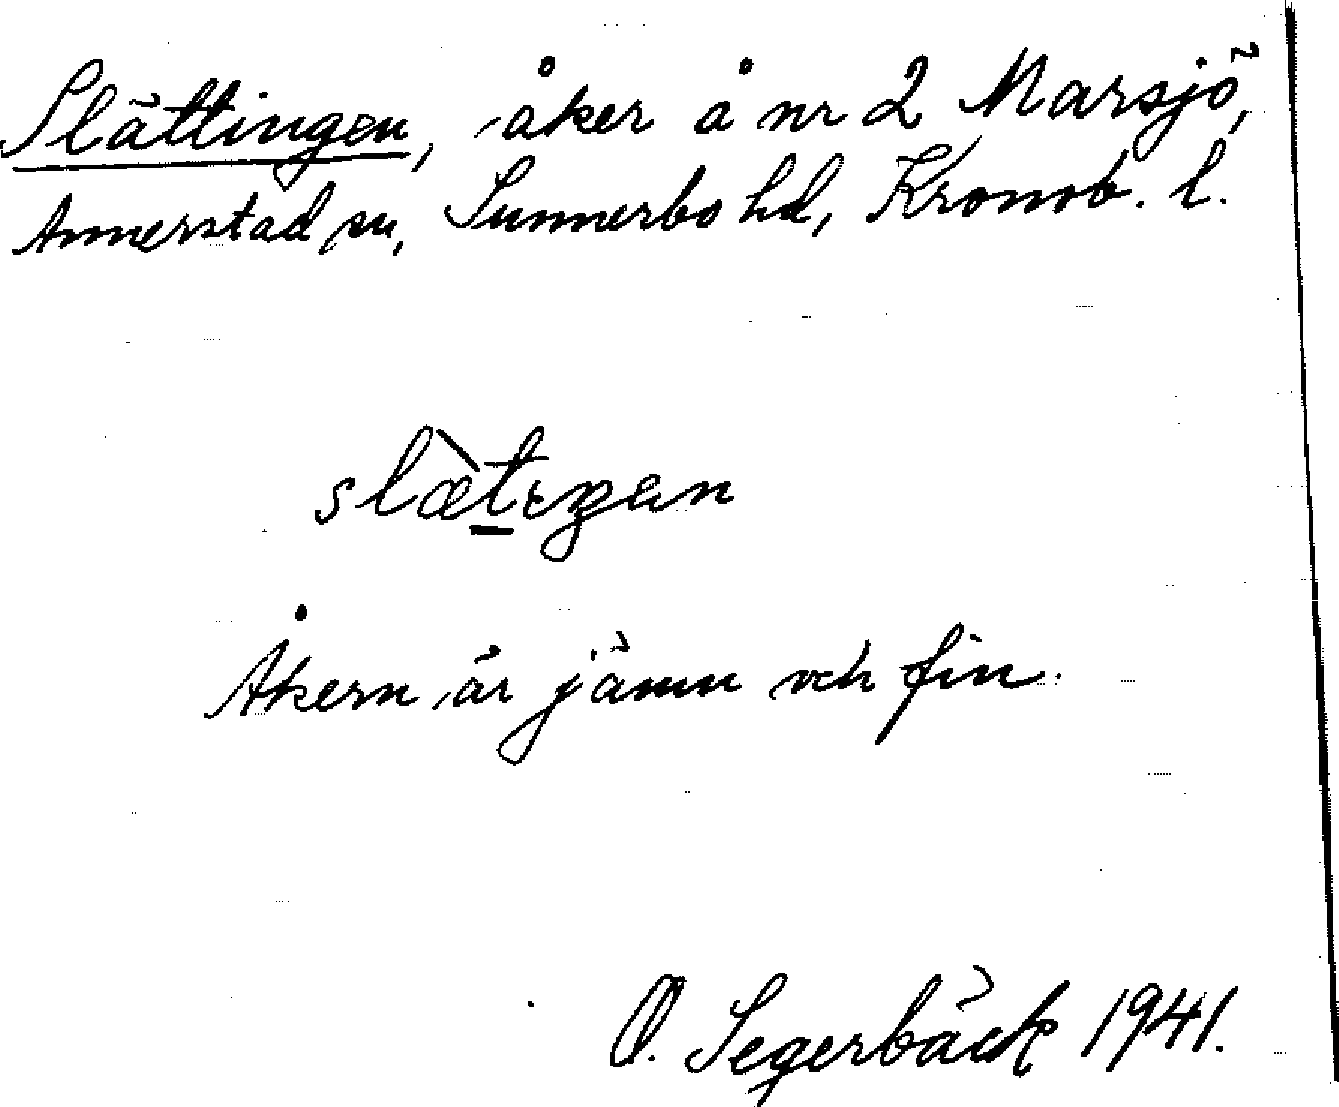 Slättingen, åker å nr 2 Marsjö,
Annerstad sn, Sunnerbo hd, Kronob. l.
slæ̀t̲ıŋen
Åkern är jämn och fin.
O. Segerbäck 1941.